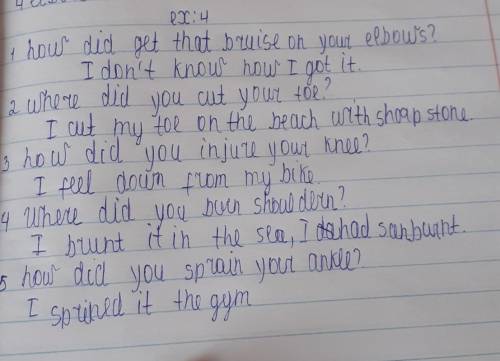 ex:4
1 how did get that bruise on your elbows?
I don't know how I got it.
2 where did you cut your toe?
I cut my toe on the beach with shoap stone.
3 how did you injure your knee?
I feel down from my bike.
4 where did you burn shouldern?
I brunt it in the sea, I had sanburnt.
5 how did you sprain your ankle?
I sprined it the gym